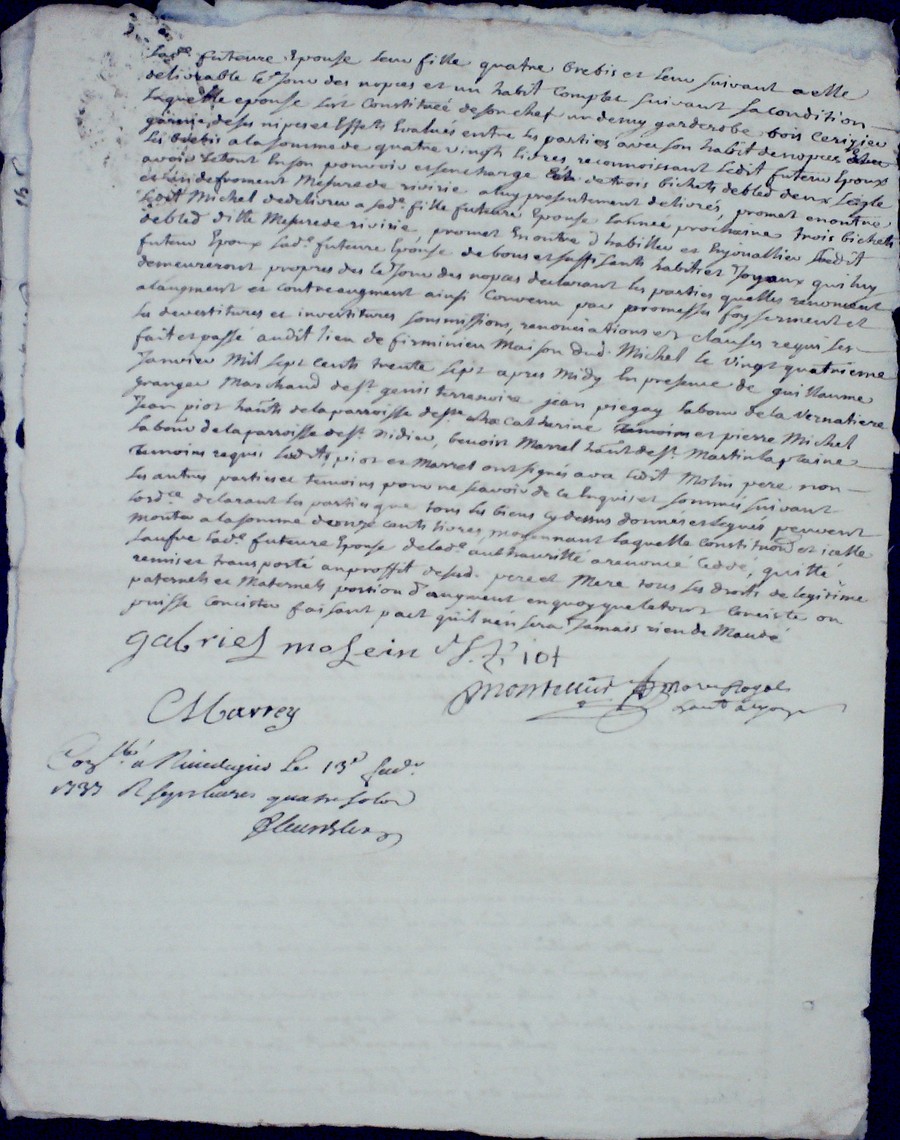 lad.e future Epouse leur fille quatre brebis et leur suivant a elle
delivrable le d. jour des nopces et un habit complet suivant sa condition
laquelle epouse sest Constituée de son chef un demy garderobe bois Cerizier
garnie, de ses nipes et Effets Evalués entre les parties avec son habit de nopces
les brebis a la somme de quatre vingt livres reconnoissant ledit futeur Epoux
avoir le tout En son pouvoir et sen charge de trois bichets debled deux seigle
et un de froment Mesure de rivirie a luy presentement delivrés, promet en outre
ledit Michel de delivrer a sad.e fille future Epouse Lannée prochaine trois bichets
debled dille Mesure de rivirie, promet En outre d'habiller et Enjouallier ledit
futeur Epoux lad.e future Epouse de bons et suffisants habits et Joyaux qui luy
demeureront propres des le d. Jour des nopces declarant les parties quelles renoncent
a laugment et contreaugment ainsi Convenu par promesses foy serment et
les devestitures et investitures soumissions, renonciations et clauses requises
fait et passé audit lieu de firminieu Maison dud. Michel le vingt quatrieme
Janvier Mil sept cents trente sept apres Midy En presence de guillaume
granger Marchand de st. genis terrenoire jean piegay labour de la Vernatiere
Jean piot habts de la parroisse de ste Catherine et pierre Michel
labour de la parroisse de st. Didier, benoist Marrel habt de st. Martin la plaine
Temoins requis Lesdits piot et Marrel ont signés avec ledit Molin pere non
les autres parties et temoins pour ne scavoir de ce Enquis et sommés suivant
lord.ce declarant les parties que tous les biens cy dessus donnés et legués peuvent
monter a la somme de onze cents livres, moyennant laquelle constitution et icelle
saufve lad.e future Epouse de lad.e authauritté a renoncé Cedé, quitté
remis et transporté au proffit desd. pere et Mere tous les droits de legitime
paternels et Maternels portion d'augment en quoy que le tout Conciste ou
puisse Concister faisant pact quil n'en sera Jamais rien demandé
gabriel molein J. Piot
Marrey no.re Royal
Con.lé a Rivedegier le 13e fev.r
1737 R sept livres quatre sols